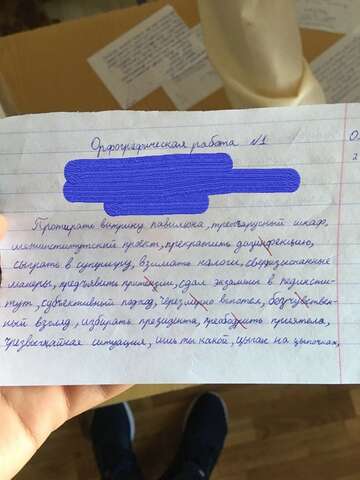 Орфографическая работа №1
Протирать витрину павильона, трехъярусный шкаф,
межинститутский проект, прекратить дазинфекцию,
сыграть в суперигру, взимать налоги, сверхизысканные
манеры, предъявить притензии, сдал экзамены в пединсти-
тут, субъективный подход, вспотел, безчувствен-
ный взгляд, избирать президента, преободрить приятеля,
чрезвычайная ситуация, ишь ты какой, цыган на цыпочках,